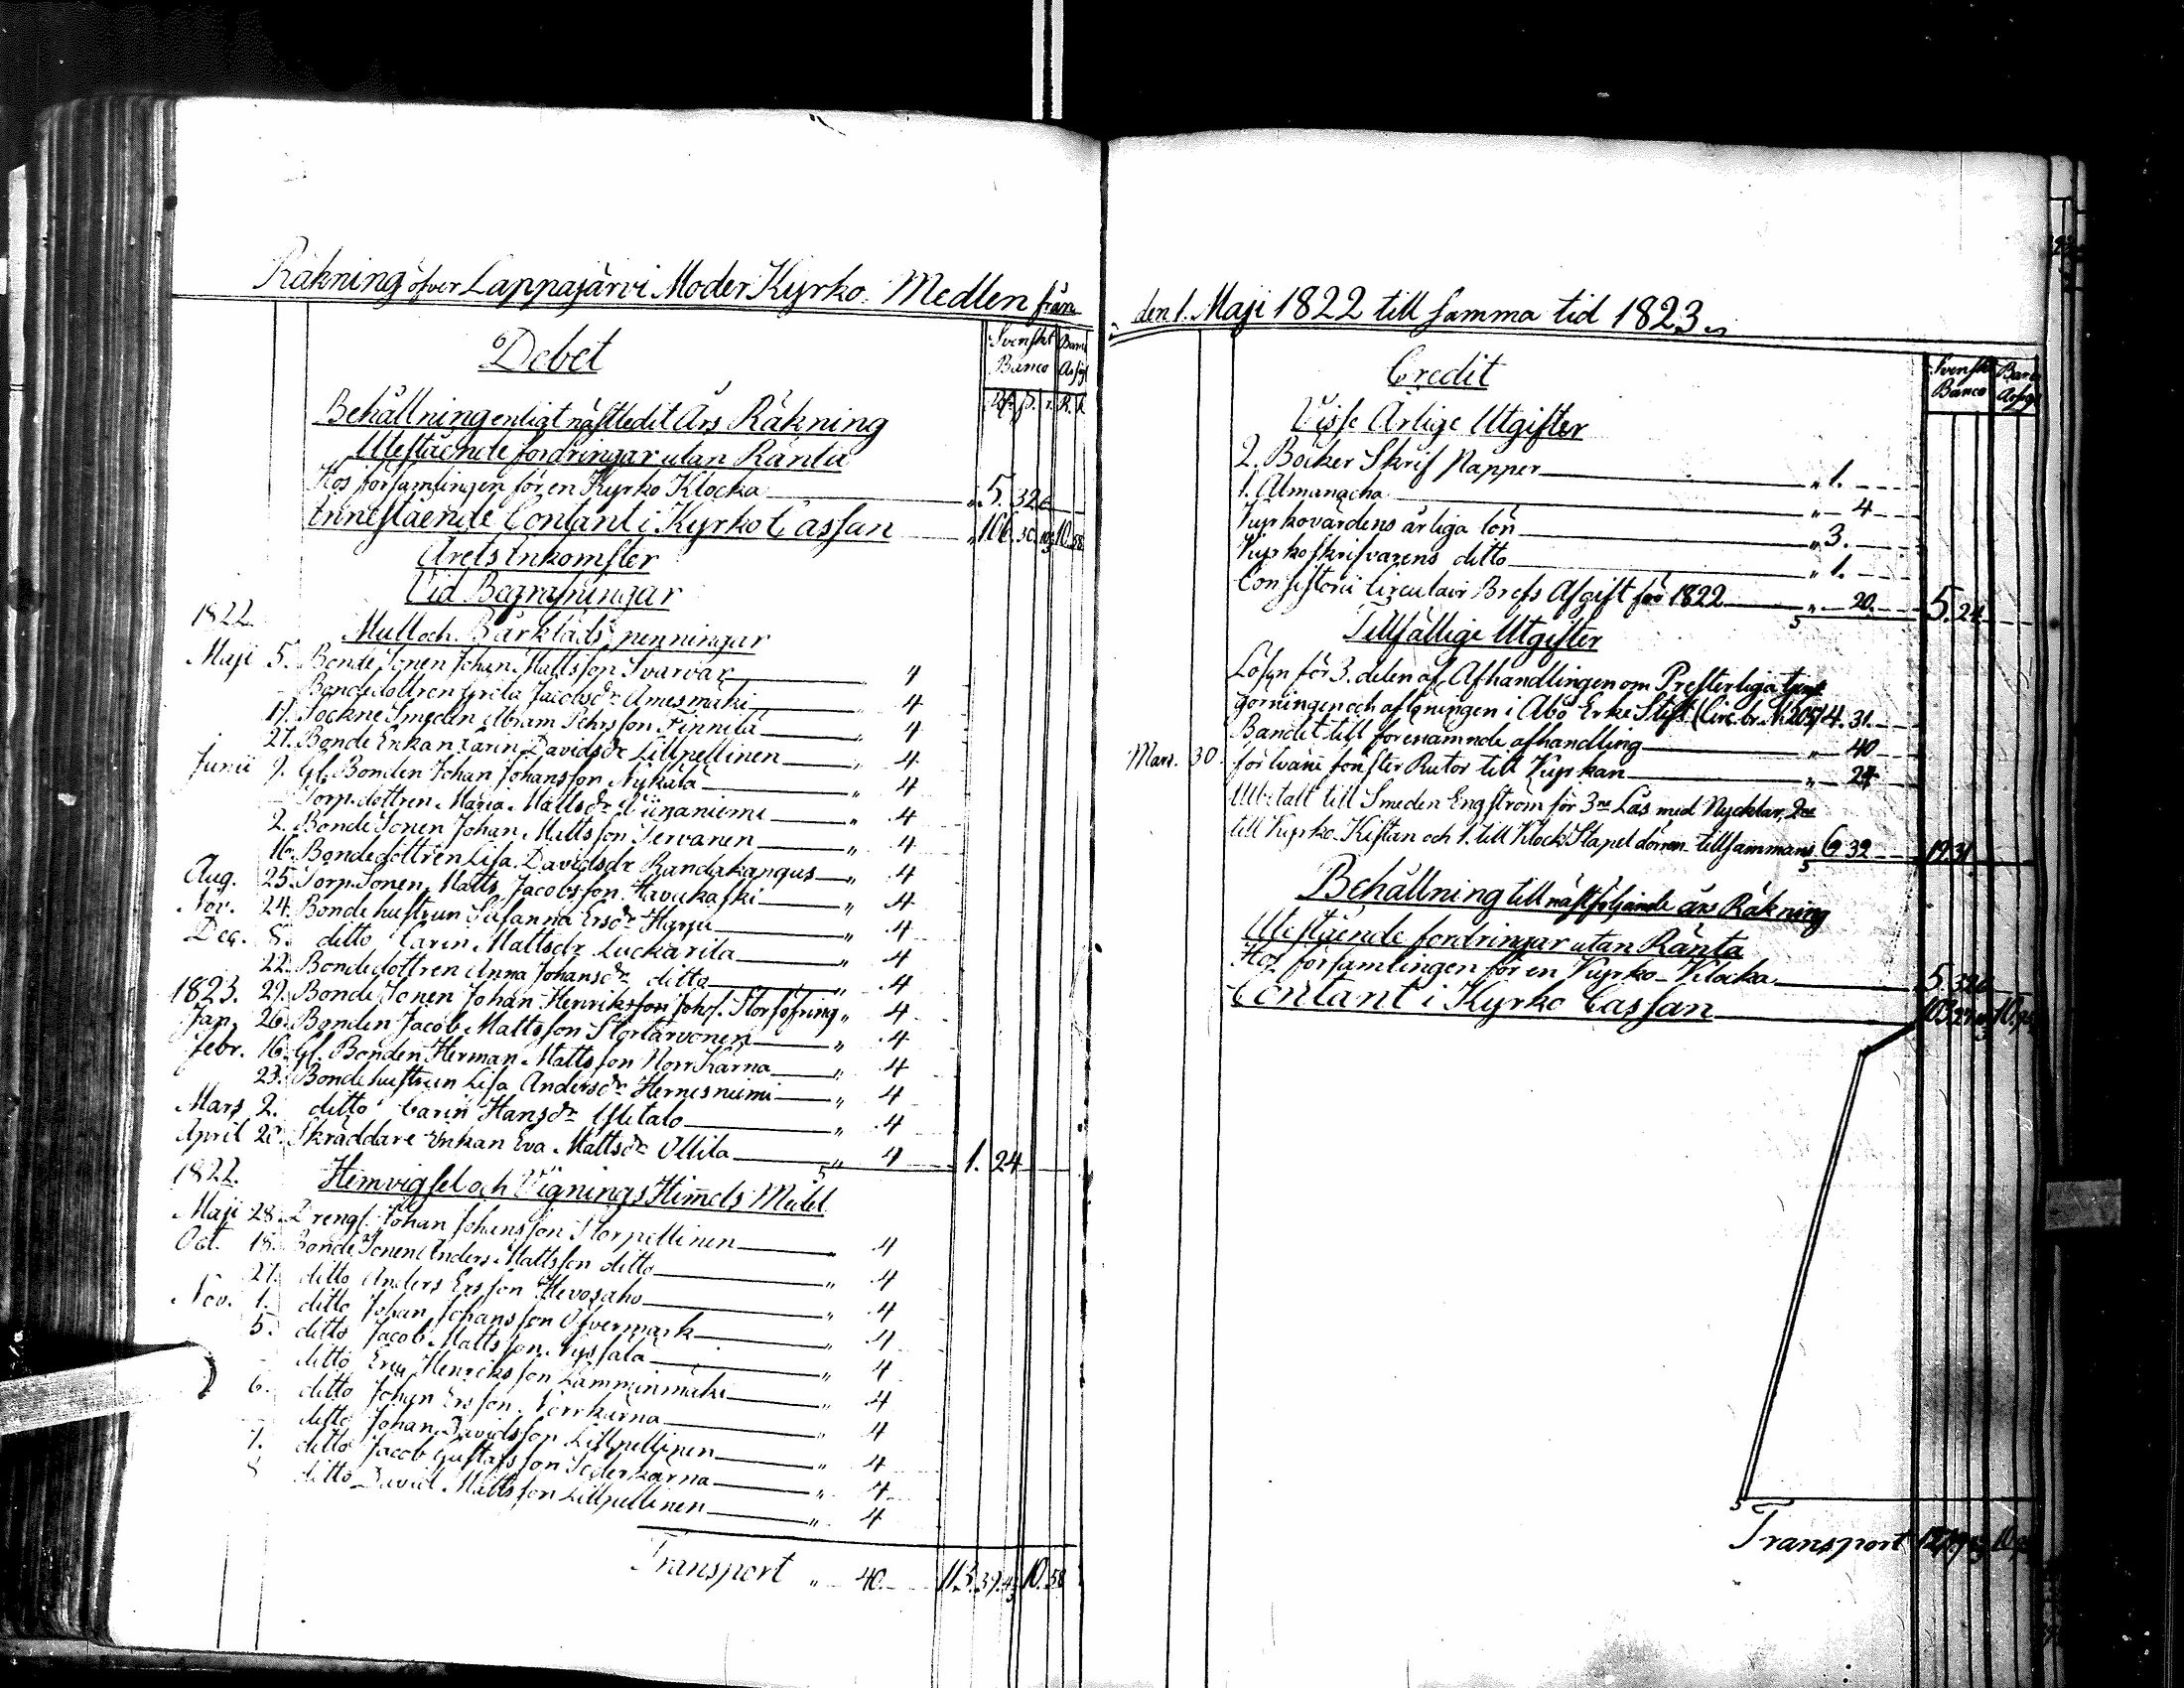 Räkning öfver Lappajärvi Moder Kyrko Medlen från
Debet
Svenskt Banco
Banco Assign
Behållning enligt nästledit Års Räkning
Utestående fordringar utan Ränta
Hos församlingen för en Kyrko Klocka 5. 32
Innestaende Contant i Kyrko Cassan 106. 30. 10. 58
Årets Inkomster
Vid Begrafningar
1822. Mull och Bårklads penningar
Maji 5. Bonde Sonen Johan Mattsson Svarvar 4
Bondedottren Greta Jacobsdr Amesmäki 4
17. Sockne Smeden Abram Pehrsson Finnilä 4
27. Bonde Enkan Carin Davidsdr Lillpellinen 4
Junii 9. Gl. Bonden Johan Johansson Nykulä 4
Torp. dottren Maria Mattsdr 4
2. Bonde Sonen Johan Mattsson Tervanen 4
16. Bondedottren Lisa Davidsdr Randakangus 4
Aug. 25. Torp. Sonen Matts Jacobsson 4
Nov. 24. Bondehustrun Susanna Ersdr Harju 4
Dec. 8. ditto Carin Mattsdr Luckarila 4
22. Bondedottren Anna Johansdr ditto 4
1823. 29. Bonde Sonen Johan Henriksson Johs. 4
Jan. 26. Bonden Jacob Mattsson Stortarvonen 4
Febr. 16. Gl. Bonden Herman Mattsson Norrkärna 4
23. Bondehustrun Lisa Andersdr Hernesniemi 4
Mars 2. ditto Carin Hansdr Ylitalo 4
April 20. Skräddare Enkan Eva Mattsdr Ollila 4 1. 24
1822. Hemvigsel och Vignings Himmels Medel
Maji 28. Drengs. Johan Johansson Storpellinen 4
Oct. 18. Bonde Sonen Anders Mattsson ditto 4
27. ditto Anders Ersson Hevosaho 4
Nov. 1. ditto Johan Johansson Öfvermark 4
5. ditto Jacob Mattsson Nyssälä 4
ditto Eric Henricksson Lamminmäki 4
6. ditto Johan Ersson Norrkärna 4
ditto Johan Davidsson Lillpellinen 4
7. ditto Jacob Gustafsson Söderkärna 4
8 ditto David Mattsson Lillpellinen 4
Transport 40. 113. 39. 10. 58
den 1. Maji 1822 till samma tid 1823.
Credit
Svenskt Banco
Banco Assign
Visse Årlige Utgifter
2. Böcker Skrif Papper 1.
1. Almanacha 4
Kyrkovärdens årliga lön 3.
Kyrkoskrifvarens ditto 1.
Consistorii Circulair Brefs Afgift för 1822 20. 5. 24
Tillfällige Utgifter
Lösen för 3. delen af Afhandlingen om Presterliga tjenst
görningen och aflöningen i Åbo Erke Stift (Circ. br. N. 205) 4. 31.
Bandet till förenämnde afhandling 40
Mars. 30. för tvänne fönster Rutor till Kyrkan 24
Utbetalt till Smeden Engström för 3ne Lås med Nycklar, 2ne
till Kyrko Kistan och 1. till Klock Stapel dörren tillsammans 6 32
Behållning till nästföljande års Räkning
Utestående fordringar utan Ränta
Hos församlingen för en Kyrko-Klocka 5. 32
Contant i Kyrko Cassan 103.
Transport